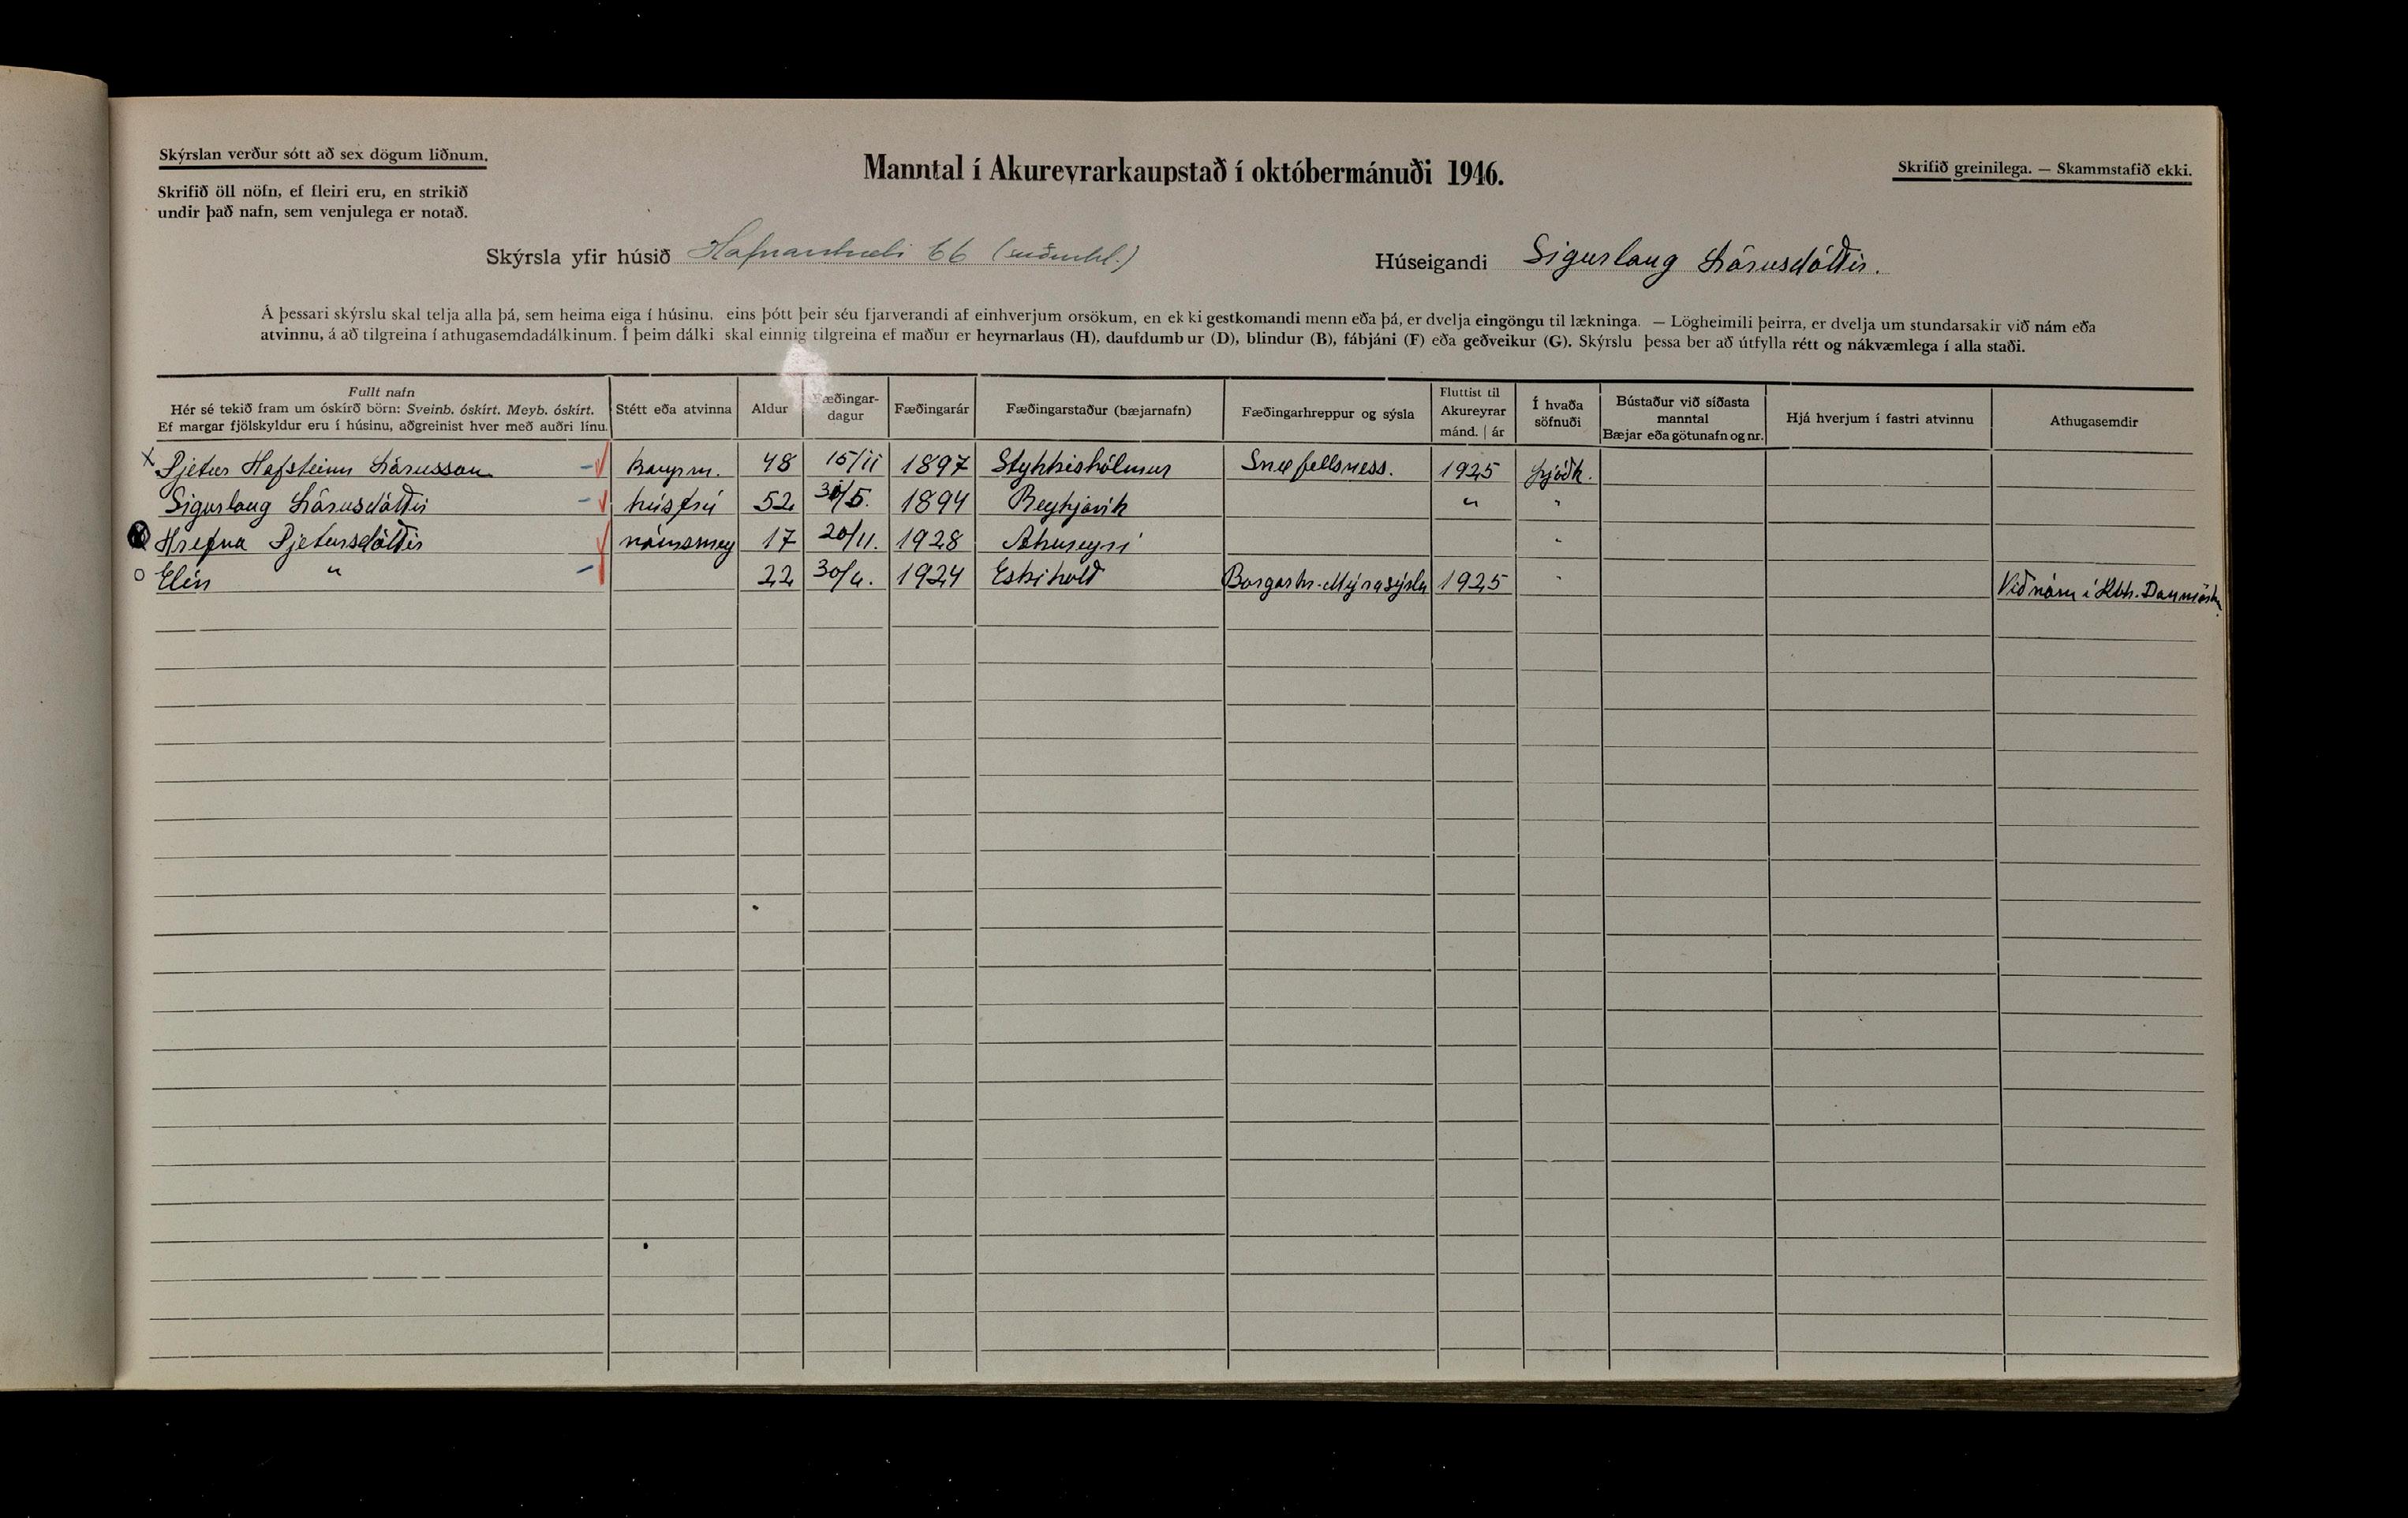 Skýrslan verður sótt að sex dögum liðnum.
Skrifið öll nöfn, ef fleiri eru, en strikið
undir það nafn, sem venjulega er notað.
Manntal í Akureyrarkaupstað í októbermánuði 1946.
Skrifið greinilega. — Skammstafið ekki.
Skýrsla yfir húsið Hafnarstræti 66 (suðurhl.)
Húseigandi Sigurlaug Lárusdóttir.
Á þessari skýrslu skal telja alla þá, sem heima eiga í húsinu, eins þótt þeir séu fjarverandi af einhverjum orsökum, en ekki gestkomandi menn eða þá, er dvelja eingöngu til lækninga. — Lögheimili þeirra, er dvelja um stundarsakir við nám eða
atvinnu, á að tilgreina í athugasemdadálkinum. Í þeim dálki skal einnig tilgreina ef maður er heyrnarlaus (H), daufdumbur (D), blindur (B), fábjáni (F) eða geðveikur (G). Skýrslu þessa ber að útfylla rétt og nákvæmlega í alla staði.
Fullt nafn
Hér sé tekið fram um óskírð börn: Sveinb. óskírt. Meyb. óskírt.
Ef margar fjölskyldur eru í húsinu, aðgreinist hver með auðri línu.
Stétt eða atvinna
Aldur
Fæðingar-
dagur
Fæðingarár
Fæðingarstaður (bæjarnafn)
Fæðingarhreppur og sýsla
Fluttist til
Akureyrar
mánd. | ár
Í hvaða
söfnuði
Bústaður við síðasta
manntal
Bæjar eða götunafn og nr.
Hjá hverjum í fastri atvinnu
Athugasemdir
x Pjetur Hafsteinn Lárusson -✓ 48 15/11 1897 Stykkishólmur Snæfellsness. 1925 þjóðk.
Sigurlaug Lárusdóttir -✓ húsfrú 52 /5. 1894 Reykjavík " "
Hrefna Pjetursdóttir ✓ námsmey 17 20/11. 1928 Akureyri "
o Elín " -✓ 22 30/4. 1924 Eskiholt Borgarhr. Mýrasýslu 1925 " Við nám í Kbh. Danmörku.